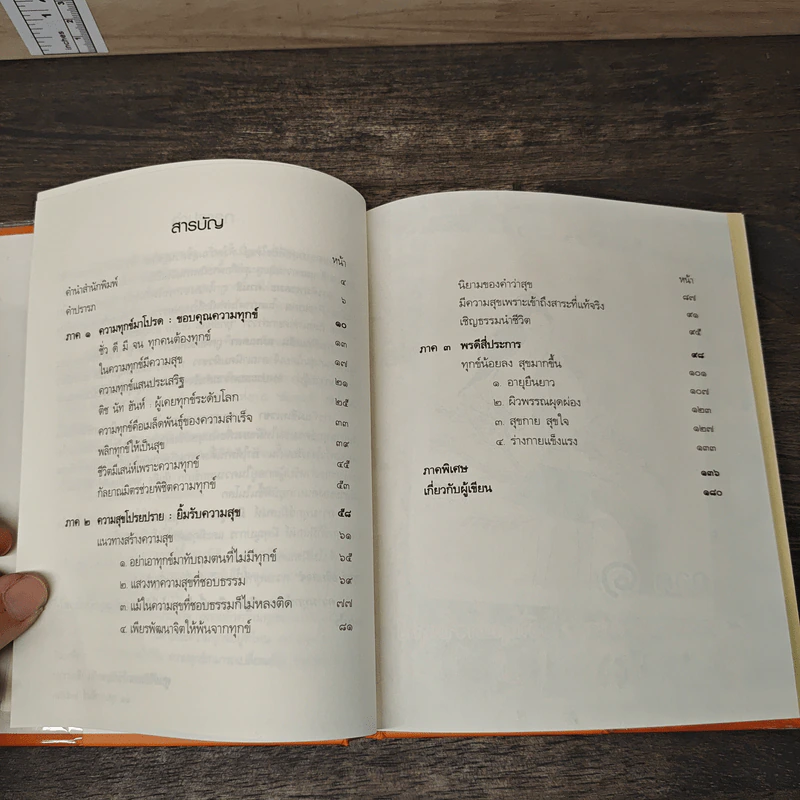 สารบัญ
หน้า
คำนำสำนักพิมพ์ ๔
คำปรารภ ๖
ภาค ๑ ความทุกข์มาโปรด : ขอบคุณความทุกข์ ๑๐
ชั่ว ดี มี จน ทุกคนต้องทุกข์ ๑๓
ในความทุกข์มีความสุข ๑๗
ความทุกข์แสนประเสริฐ ๒๑
ติช นัท ฮันห์ : ผู้เคยทุกข์ระดับโลก ๒๕
ความทุกข์คือเมล็ดพันธุ์ของความสำเร็จ ๓๓
พลิกทุกข์ให้เป็นสุข ๓๙
ชีวิตมีเสน่ห์เพราะความทุกข์ ๔๕
กัลยาณมิตรช่วยพิชิตความทุกข์ ๕๓
ภาค ๒ ความสุขโปรยปราย : ยิ้มรับความสุข ๕๘
แนวทางสร้างความสุข ๖๑
๑. อย่าเอาทุกข์มาทับถมตนที่ไม่มีทุกข์ ๖๕
๒. แสวงหาความสุขที่ชอบธรรม ๖๙
๓. แม้ในความสุขที่ชอบธรรมก็ไม่หลงติด ๗๗
๔. เพียรพัฒนาจิตให้พ้นจากทุกข์ ๘๑
หน้า
นิยามของคำว่าสุข ๘๗
มีความสุขเพราะเข้าถึงสาระที่แท้จริง ๙๑
เชิญธรรมนำชีวิต ๙๕
ภาค ๓ พรดีสี่ประการ ๙๘
ทุกข์น้อยลง สุขมากขึ้น ๑๐๑
๑. อายุยืนยาว ๑๐๗
๒. ผิวพรรณผุดผ่อง ๑๒๓
๓. สุขกาย สุขใจ ๑๒๗
๔. ร่างกายแข็งแรง ๑๓๓
ภาคพิเศษ ๑๓๖
เกี่ยวกับผู้เขียน ๑๘๐